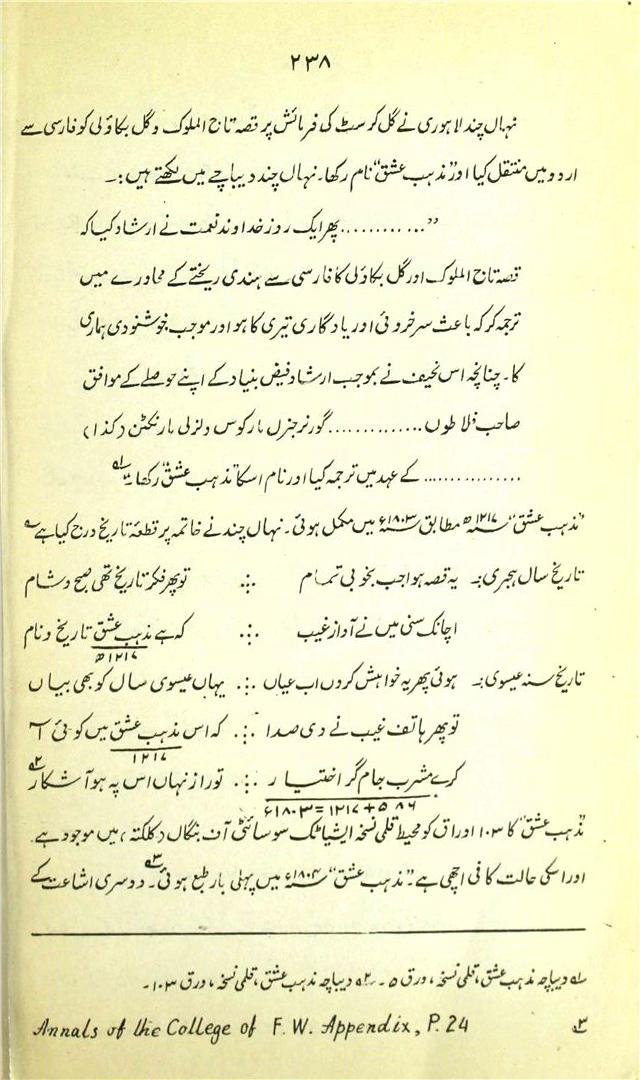 ۲۳۸
نہاں چند لاہوری نے گل کرسٹ کی فرمائش پر قصہ تاج الملوک و گل بکاؤلی کو فارسی سے
اردو میں منتقل کیا اور "مذہب عشق" نام رکھا۔ نہاں چند دیباچے میں لکھتے ہیں :۔
"............ پھر ایک روز خداوند نعمت نے ارشاد کیا کہ
قصہ تاج الملوک اور گل بکاؤلی کا فارسی سے ہندی ریختے کے محاورے میں
ترجمہ کر کہ باعث سرخروئی اور یادگاری تیری کا ہو اور موجب خوشنودی ہماری
کا۔ چنانچہ اس نحیف نے بموجب ارشاد فیض بنیاد کے اپنے حوصلے کے موافق
صاحب فلاطوں ............. گورنر جنرل مارکوس ولزلی مارنکٹن (کذا)
.............. کے عہد میں ترجمہ کیا اور نام اسکا "مذہب عشق" رکھا۔" ؎۱
"مذہب عشق" ۱۲۱۷ھ مطابق ۱۸۰۳ء میں مکمل ہوئی۔ نہاں چند نے خاتمہ پر قطعۂ تاریخ درج کیا ہے
تاریخ سال ہجری :۔ یہ قصہ ہوا جب بخوبی تمام ∴ تو پھر فکر تاریخ تھی صبح و شام
اچانک سنی میں نے آواز غیب ∴ کہ ہے مذہب عشق تاریخ و نام
۱۲۱۷ھ
تاریخ سنہ عیسوی :۔ ہوئی پھر یہ خواہش کروں اب عیاں ∴ یہاں عیسوی سال کو بھی بیاں
تو پھر ہاتف غیب نے دی صدا ∴ کہ اس مذہب عشق میں کوئی آ
۱۲۱۷
کرے مشرب جام گر اختیار ∴ تو راز نہاں اس پہ ہو آشکار ؎۲
۵۸۶+۱۲۱۷=۱۸۰۳ء
"مذہب عشق" کا ۱۰۳ اوراق کو محیط قلمی نسخہ ایشیاٹک سوسائٹی آف بنگال (کلکتہ) میں موجود ہے۔
اور اسکی حالت کافی اچھی ہے۔ "مذہب عشق" ۱۸۰۴ء میں پہلی بار طبع ہوئی۔ ؎۳ دوسری اشاعت کے
؎۱ دیباچہ مذہب عشق، قلمی نسخہ، ورق ۵۔ ؎۲ دیباچہ مذہب عشق، قلمی نسخہ، ورق ۱۰۳۔
؎۳ Annals of the College of F. W. Appendix, P. 24